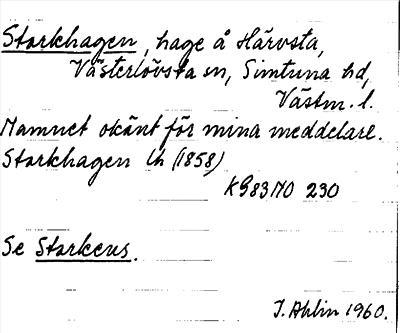 Storkhagen, hage å Härvsta,
Västerlövsta sn, Simtuna hd,
Västm. l.
Namnet okänt för mina meddelare.
Storkhagen Lh (1858)
KG83NO 230
Se Storkens.
I. Ahlin 1960.